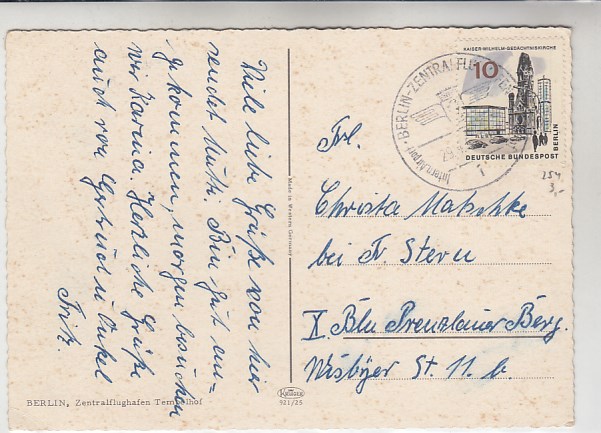 Viele liebe Grüße von hier
sendet Mutti. Bin gut an-
gekommen, morgen besuchen
wir Karina. Herzliche Grüße
auch von Gertrud u. Onkel
Fritz.
BERLIN, Zentralflughafen Tempelhof
Made in Western Germany
921/25
KAISER-WILHELM-GEDÄCHTNISKIRCHE
10
DEUTSCHE BUNDESPOST
BERLIN
BERLIN-ZENTRALFLUGHAFEN
Intern. Airport
254
3,-
Frl.
Christa Matschke
bei Fr. Stern
X. Bln Prenzlauer Berg.
Wisbyer St. 11 b.